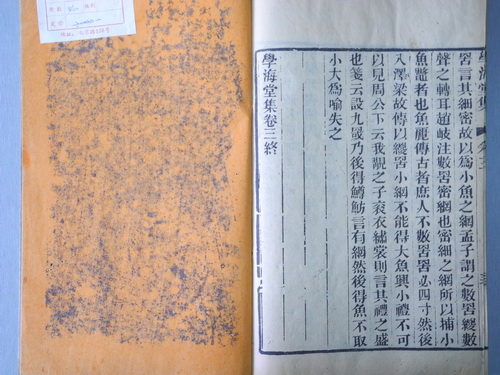 學海堂集
罟言其細密故以爲小魚之網孟子謂之數罟緵數
聲之轉耳趙岐注數罟密網也密細之網所以捕小
魚鼈者也魚麗傳古者庶人不數罟罟必四寸然後
入澤梁故傳以緵罟小網不能得大魚興小禮不可
以見周公下云我覯之子袞衣繡裳則言其禮之盛
也箋云設九罭乃後得鱒魴言有網然後得魚不取
小大爲喻失之
學海堂集卷三終